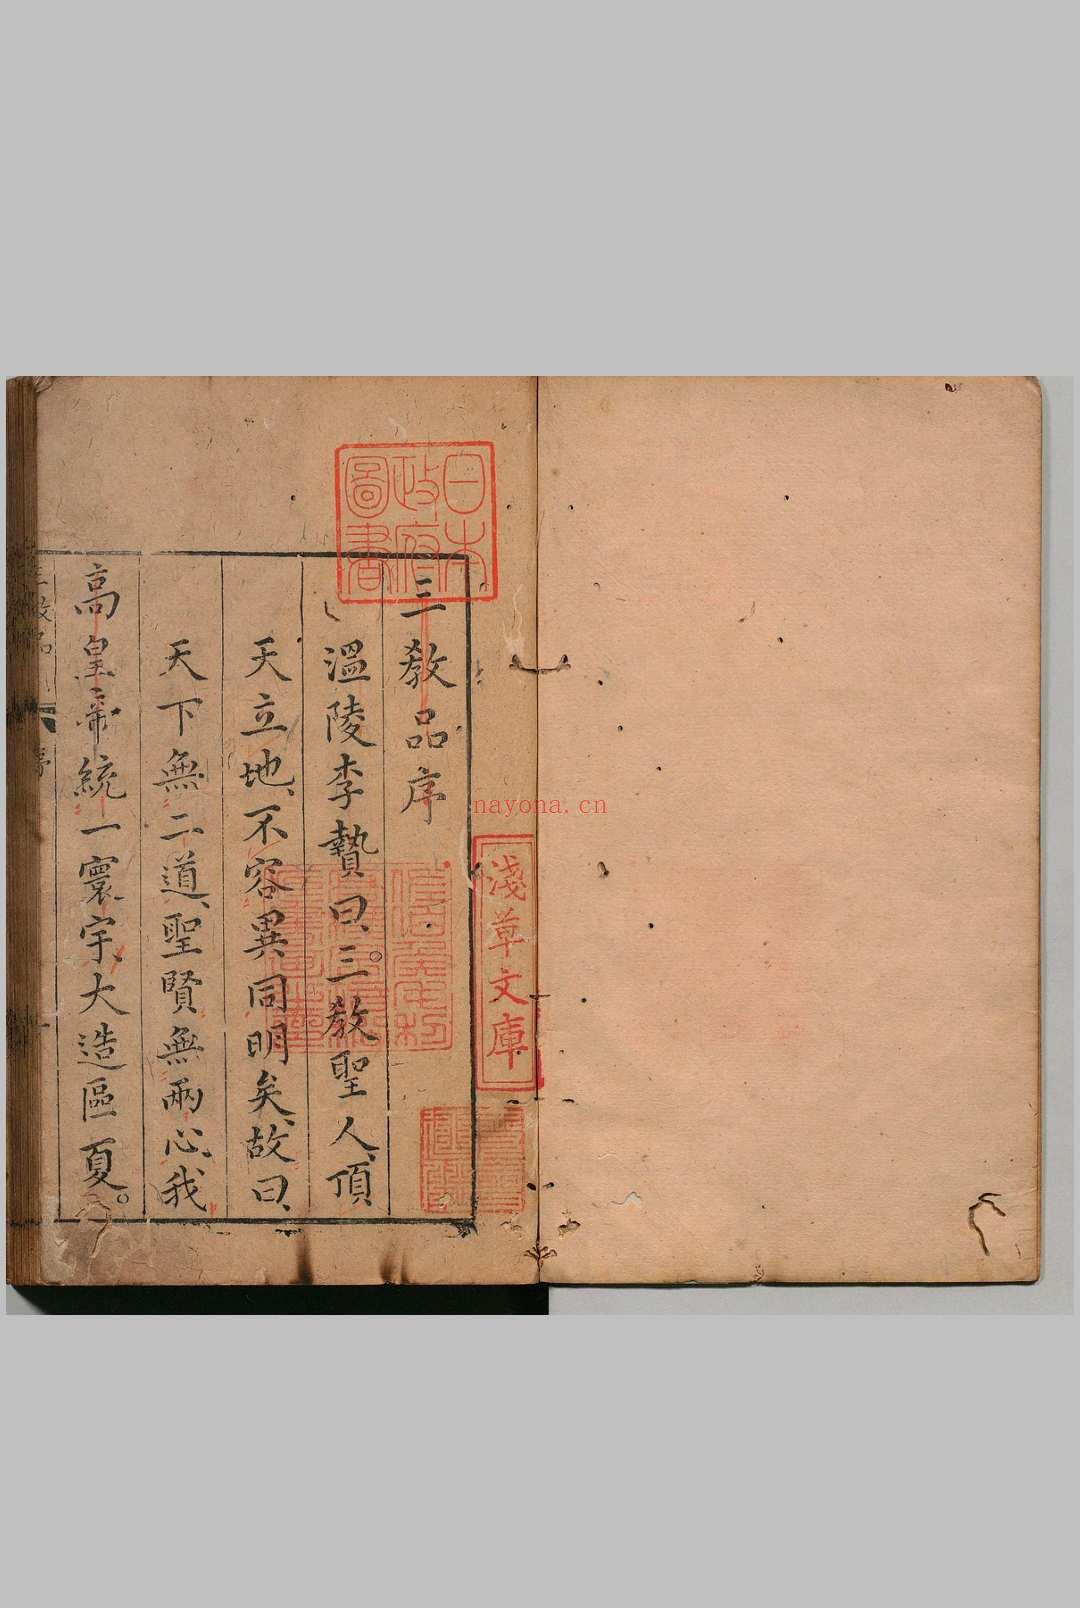 三教品序
溫陵李贄曰三教聖人頂
天立地不容異同明矣故曰
天下無二道聖賢無兩心我
高皇帝統一寰宇大造區夏。
日本
政府
圖書
淺草文庫
nayona.cn